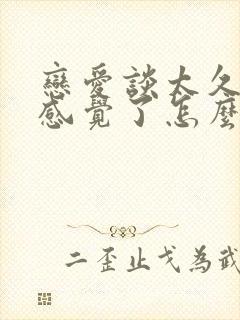 戀愛談太久
感覺了怎麼
二歪止戈為武